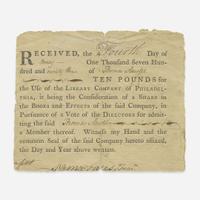 RECEIVED, the Fourth Day of
One Thousand Seven Hun-
dred and of Thomas
TEN POUNDS for
the Use of the LIBRARY COMPANY OF PHILADEL-
PHIA, it being the Consideration of a SHARE in
the BOOKS and EFFECTS of the said Company, in
Pursuance of a VOTE of the DIRECTORS for admit-
ting the said Thomas
a Member thereof. Witness my Hand and the
common Seal of the said Company hereto affixed,
this Day and Year above written.